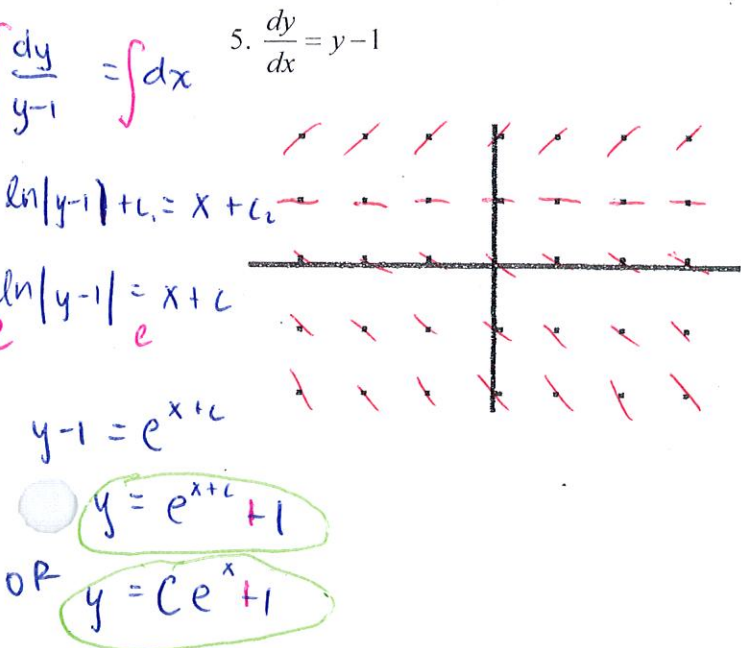 5. dy/dx = y-1
∫ dy/y-1 = ∫dx
ln|y-1| + C₁ = x + C₂
e^ln|y-1| = e^x+c
y-1 = e^x+c
y = e^x+c +1
OR
y = Ce^x +1